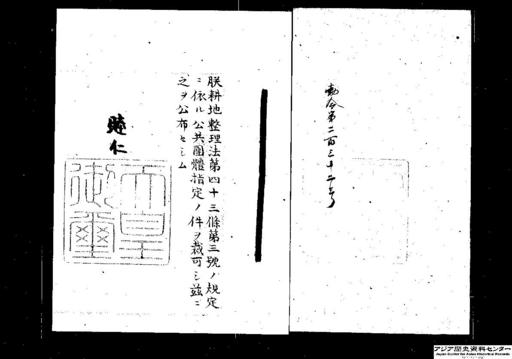 勅令第二百三十二号
朕耕地整理法第四十三條第三號ノ規定
ニ依ル公共團體指定ノ件ヲ裁可シ茲ニ
之ヲ公布セシム
睦仁
天皇
御璽
アジア歴史資料センター
Japan Center for Asian Historical Records